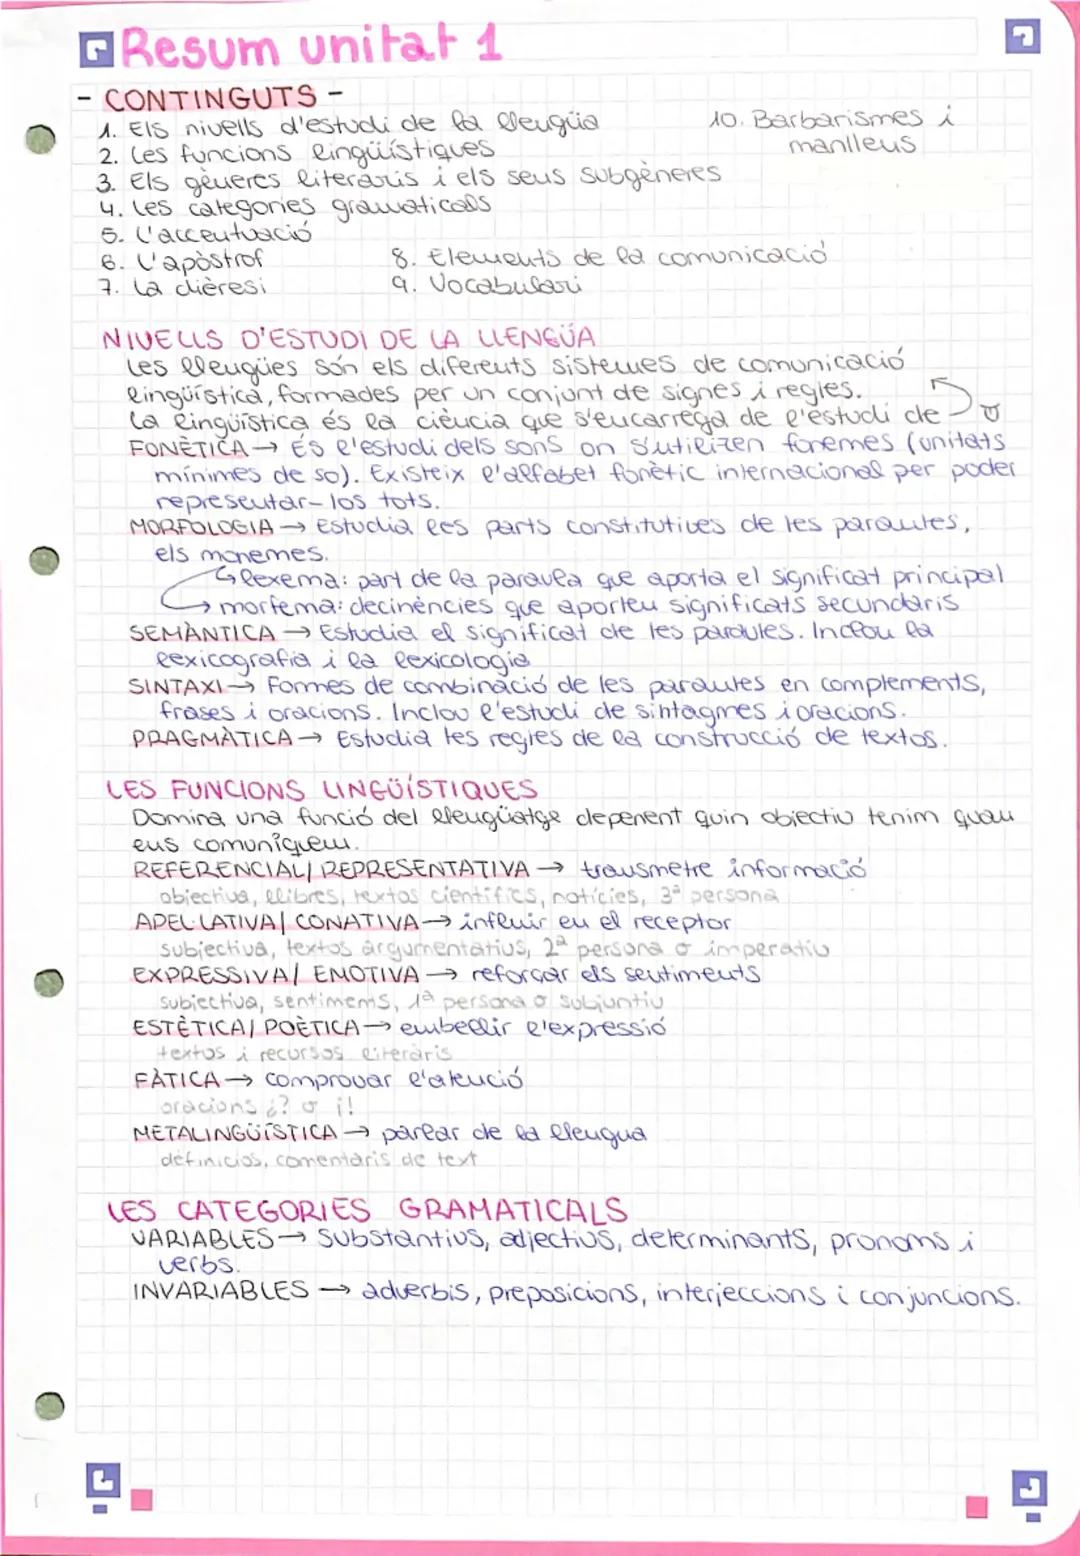 Resum unitat 1
- CONTINGUTS -
1. Els nivells d'estudi de la llengüa
10. Barbarismes i
manlleus
2. Les funcions lingüístiques
3. Els gèneres literaris i els seus subgèneres
4. Les categories gramaticals
5. L'accentuació
6. L'apòstrof
8. Elements de la comunicació
7. La dièresi
9. Vocabulari
NIVELLS D'ESTUDI DE LA LLENGÜA
Les llengües són els diferents sistemes de comunicació
lingüística, formades per un conjunt de signes i regles.
La lingüística és la ciència que s'encarrega de l'estudi de
FONÈTICA → És l'estudi dels sons on s'utilitzen fonemes (unitats
mínimes de so). Existeix l'alfabet fonètic internacional per poder
representar-los tots.
MORFOLOGIA → Estudia les parts constitutives de les paraules,
els monemes.
lexema: part de la paraula que aporta el significat principal
morfema: decinències que aporten significats secundaris
SEMÀNTICA → Estudia el significat de les paraules. Inclou la
lexicografia i la lexicologia
SINTAXI → Formes de combinació de les paraules en complements,
frases i oracions. Inclou l'estudi de sintagmes i oracions.
PRAGMÀTICA → Estudia les regles de la construcció de textos.
LES FUNCIONS LINGÜÍSTIQUES
Domina una funció del llengüatge depenent quin objectiu tenim quan
ens comuniquem.
REFERENCIAL/REPRESENTATIVA → transmetre informació
objectiva, llibres, textos científics, notícies, 3ª persona
APEL·LATIVA/CONATIVA → influir en el receptor
subjectiva, textos argumentatius, 2ª persona o imperatiu
EXPRESSIVA/EMOTIVA → reforçar els sentiments
subjectiva, sentiments, 1ª persona o subjuntiu
ESTÈTICA/POÈTICA → embellir l'expressió
textos i recursos literaris
FÀTICA → comprovar l'atenció
oracions ¿? o ¡!
METALINGÜÍSTICA → parlar de la llengua
definicios, comentaris de text
LES CATEGORIES GRAMATICALS
VARIABLES → Substantius, adjectius, determinants, pronoms i
verbs.
INVARIABLES → adverbis, preposicions, interjeccions i conjuncions.